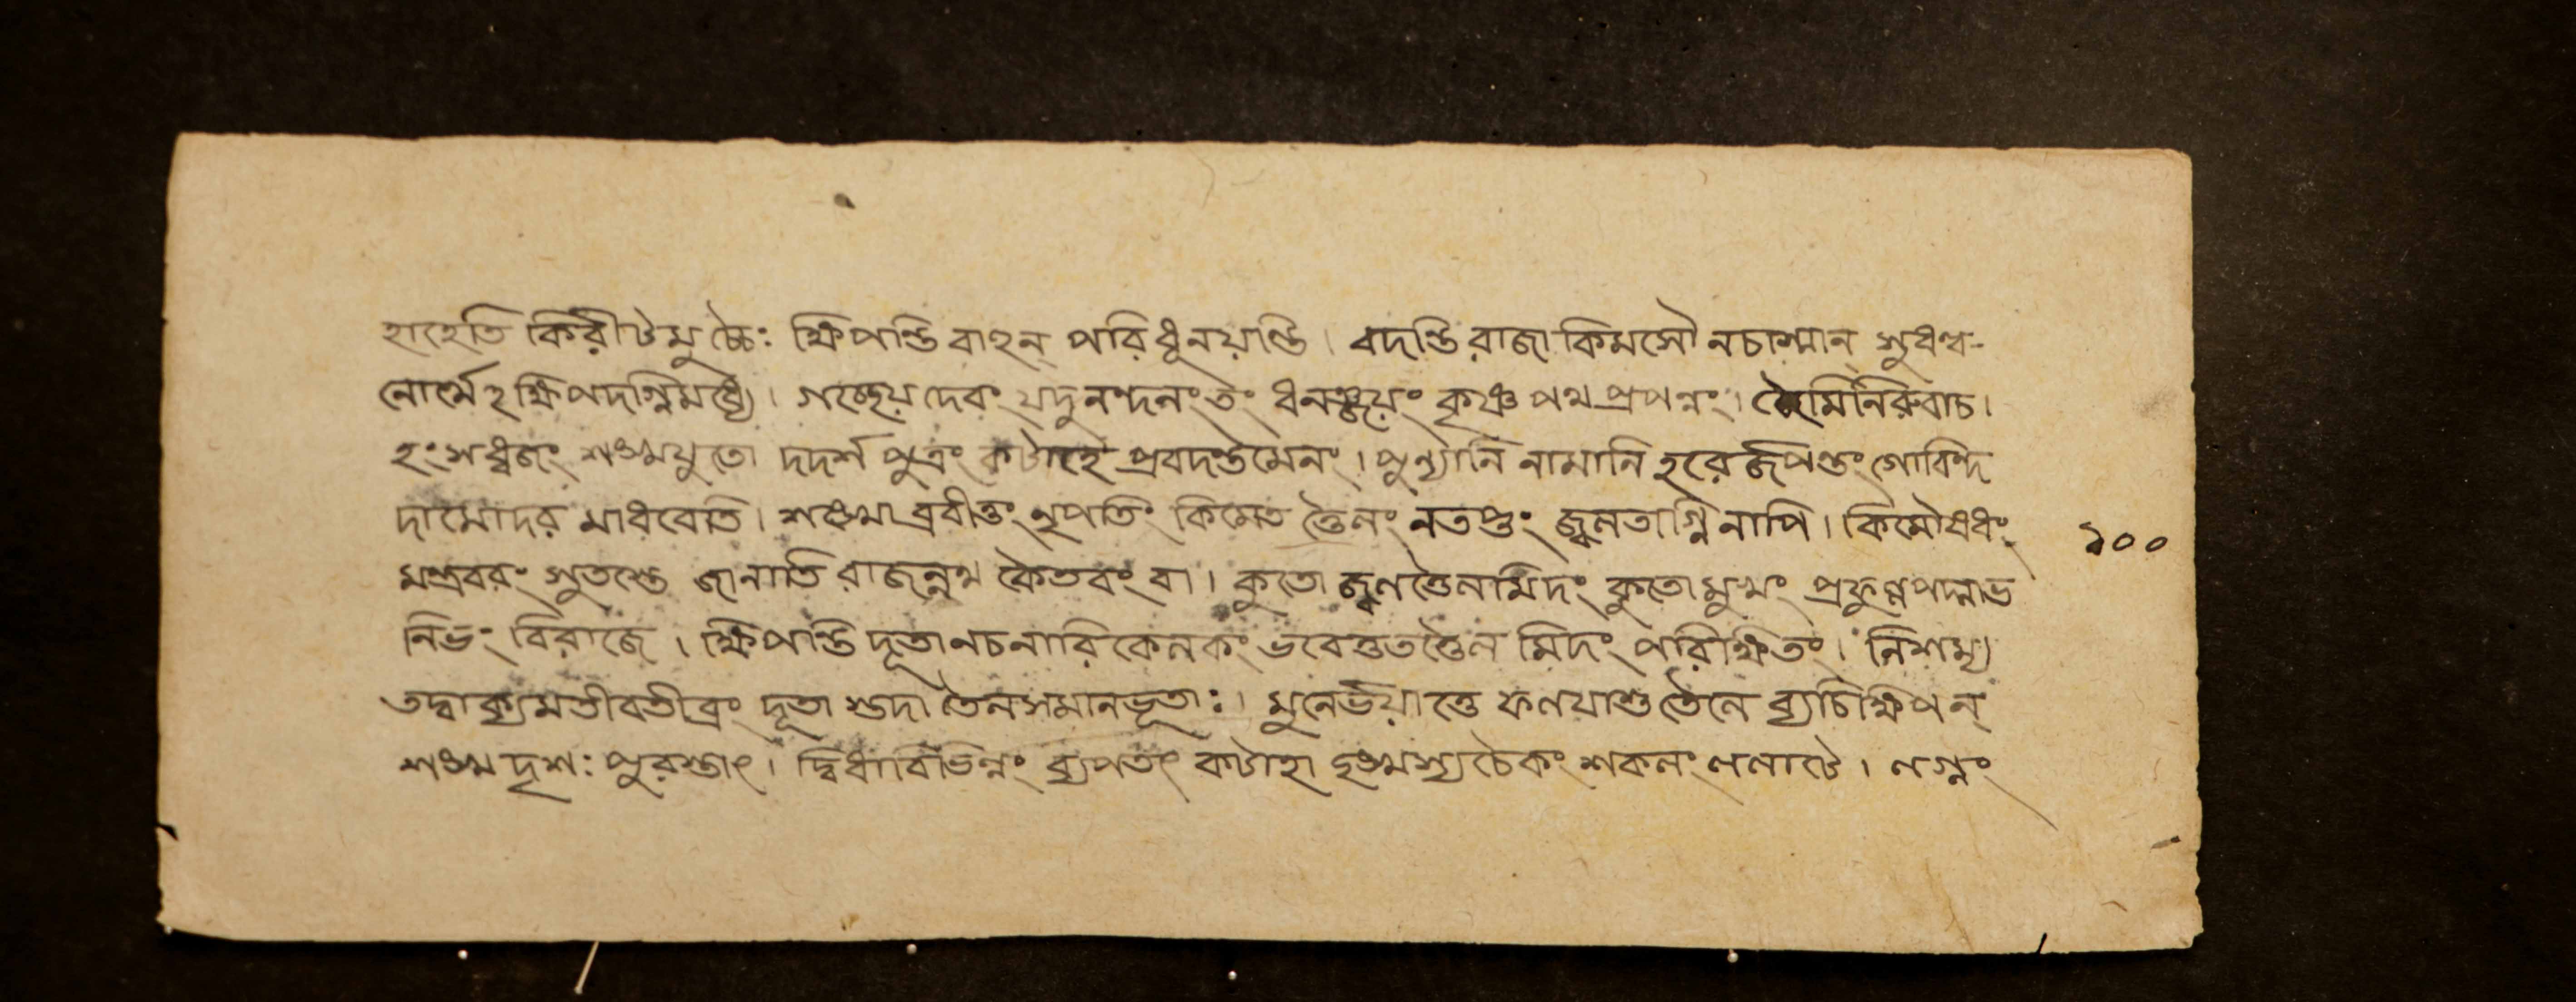 হাহেতি কিরীটমুচ্চৈঃ ক্ষিপন্তি বাহন্ পরিধূনয়ন্তি। বদন্তি রাজা কিমসৌ নচাস্মান্ সুধন্ব-
নোর্থেহ ক্ষিপদগ্নিমধ্যে। গচ্ছেয় দেবং যদুনন্দনং তং ধনঞ্জয়ং কৃষ্ণপথপ্রপন্নং। জৈমিনিরুবাচ।
হংসধ্বজং শঙ্খযুতো দদর্শ পুত্রং কটাহে প্রবদন্তমেনং। পুন্যানি নামানি হরের্জপন্তং গোবিন্দ
দামোদর মাধবেতি। শঙ্খোব্রবীত্তং নৃপতিং কিমেত ত্তৈলং নতপ্তং জ্বলতাগ্নিনাপি। কিমৌষধং ১০০
মন্ত্রবরং সুতস্তে জানাতি রাজন্নথ কৈতবং বা। কুতো জ্বলত্তৈলমিদং কুতো মুখং প্রফুল্লপদ্মাভ
নিভং বিরাজে। ক্ষিপন্তি দূতা নচনারিকেলকং ভবেত্তুতত্তৈল মিদং পরিক্ষিতং। নিশম্য
তদ্বাক্যমতীবতীব্রং দূতা স্তদা তৈলসমানভূতাঃ। মুনের্ভয়াত্তে ফলয়াশু তৈলে ব্যচিক্ষিপন্
শঙ্খদৃশঃ পুরস্তাৎ। দ্বিধাবিভিন্নং ব্যপতৎ কটাহা চ্ছঙ্খস্য চৈকং শকলং ললাটে। লগ্নং